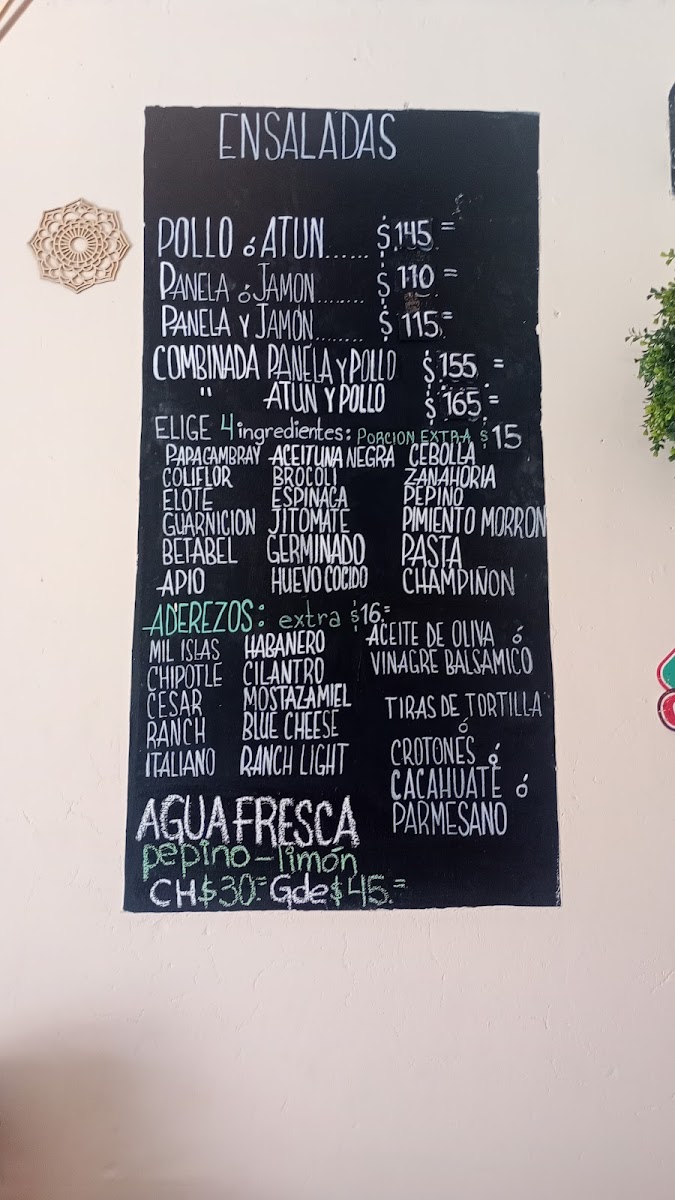 ENSALADAS
POLLO ó ATUN...... $ 145 =
PANELA ó JAMON........ $ 110 =
PANELA Y JAMÓN........ $ 115 =
COMBINADA PANELA y POLLO $ 155 =
" ATUN Y POLLO $ 165 =
ELIGE 4 ingredientes: PORCION EXTRA $ 15
PAPA CAMBRAY ACEITUNA NEGRA CEBOLLA
COLIFLOR BROCOLI ZANAHORIA
ELOTE ESPINACA PEPINO
GUARNICION JITOMATE PIMIENTO MORRON
BETABEL GERMINADO PASTA
APIO HUEVO COCIDO CHAMPIÑON
ADEREZOS: extra $16.=
MIL ISLAS HABANERO ACEITE DE OLIVA ó
CHIPOTLE CILANTRO VINAGRE BALSAMICO
CESAR MOSTAZAMIEL TIRAS DE TORTILLA
RANCH BLUE CHEESE ó
ITALIANO RANCH LIGHT CROTONES ó
CACAHUATE ó
PARMESANO
AGUA FRESCA
pepino-limón
CH $30.= Gde $45.=